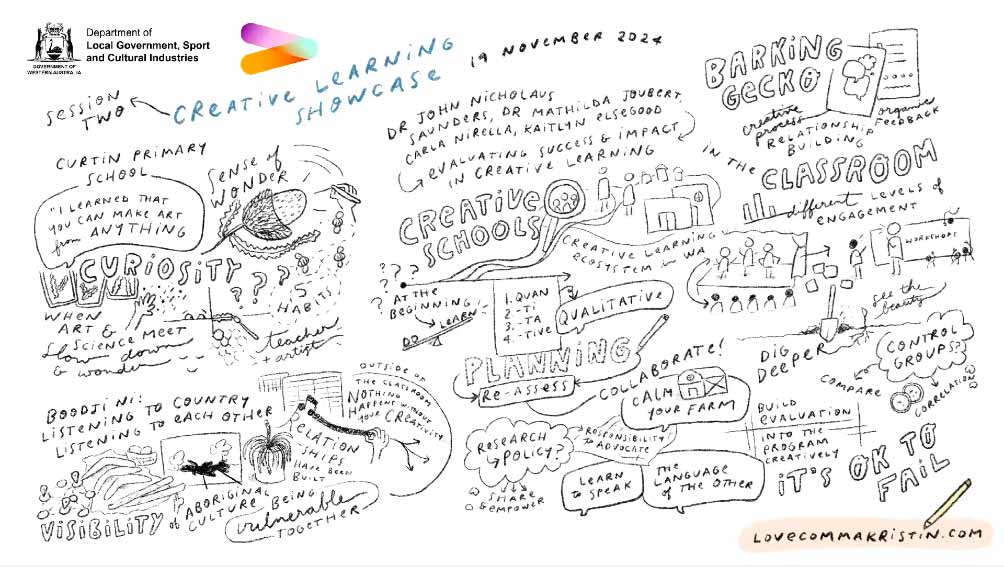 Department of
Local Government, Sport
and Cultural Industries
GOVERNMENT OF
WESTERN AUSTRALIA
SESSION
TWO
CREATIVE LEARNING
SHOWCASE
19 NOVEMBER 2024
CURTIN PRIMARY
SCHOOL
"I LEARNED THAT
YOU CAN MAKE ART
from ANYTHING
SENSE of
WONDER
CURIOSITY
? ? ?
5
HABITS
WHEN
ART &
SCIENCE MEET
slow down
& wonder
teacher
+ artist
BOODJI NI:
LISTENING TO COUNTRY
LISTENING TO EACH OTHER
VISIBILITY of ABORIGINAL
CULTURE
BEING
vulnerable
TOGETHER
RELATION
SHIPS
HAVE BEEN
BUILT
OUTSIDE OF
THE CLASSROOM
NOTHING
HAPPENS WITHOUT
YOUR CREATIVITY
DR JOHN NICHOLAS
SAUNDERS, DR MATHILDA JOUBERT,
CARLA NIRELLA, KAITLYN ELSEGOOD
EVALUATING SUCCESS & IMPACT
IN CREATIVE LEARNING
CREATIVE
SCHOOLS
CREATIVE LEARNING
ECOSYSTEM in WA
? ? ?
?
?
AT THE
BEGINNING
DO
LEARN
1. QUAN
2. -TI
3. -TA
4. -TIVE
QUALITATIVE
PLANNING
RE-ASSESS
COLLABORATE!
CALM
YOUR FARM
RESEARCH
POLICY?
SHARE
& EMPOWER
RESPONSIBILITY
TO ADVOCATE
LEARN
TO SPEAK
THE
LANGUAGE
OF THE OTHER
BARKING
GECKO
creative
process
organic
FEEDBACK
RELATIONSHIP
BUILDING
IN THE
CLASSROOM
different LEVELS of
ENGAGEMENT
WORKSHOPS
see the
beauty
DIG
DEEPER
CONTROL
GROUPS?
COMPARE
CORRELATION
BUILD
EVALUATION
INTO THE
PROGRAM
CREATIVELY
IT'S OK TO
FAIL
LOVECOMMAKRISTIN.COM